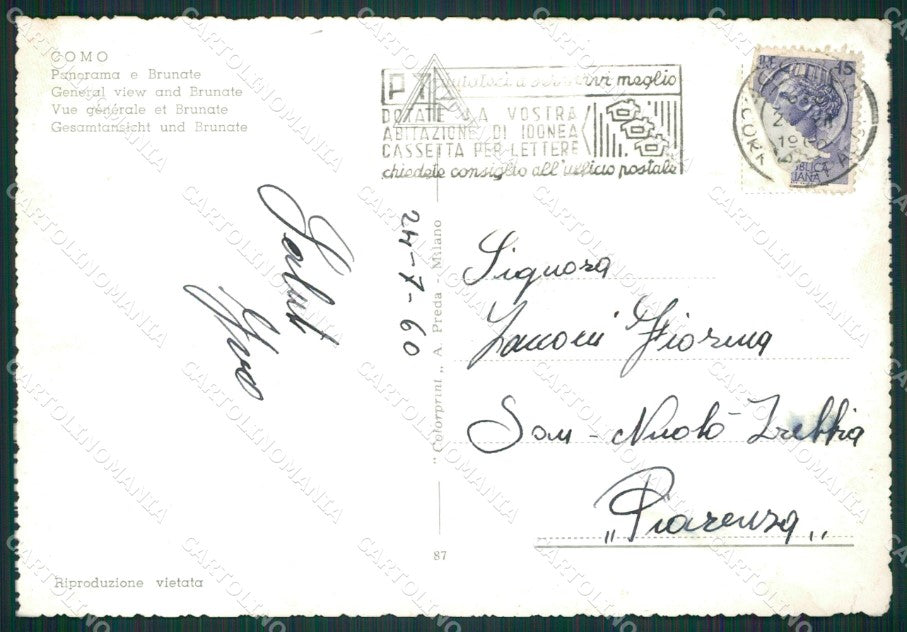 COMO
Panorama e Brunate
General view and Brunate
Vue générale et Brunate
Gesamtansicht und Brunate
PT aiutateci a servirvi meglio
DOTATE LA VOSTRA
ABITAZIONE DI IDONEA
CASSETTA PER LETTERE
chiedete consiglio all'ufficio postale
LIRE 15
ITALIANA
Saluti
24-7-60
"Colorprint" A. Preda - Milano
Signora
Zanoni Fiorina
San-Nicolò Trebbia
"Piacenza"
87
Riproduzione vietata
CARTOLINOMANIA